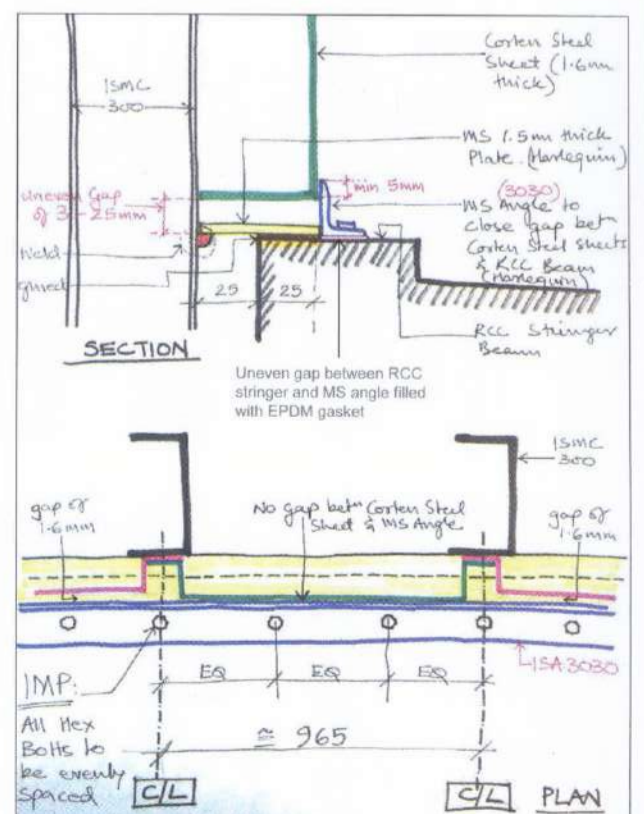 Corten Steel
Sheet (1.6mm
thick)
ISMC
300
MS 1.5mm thick
Plate. (Harlequin)
min 5mm
(3030)
MS Angle to
close gap betn
Corten Steel sheets
& RCC Beam
(Harlequin)
uneven Gap
of 3-25mm
Weld
25
25
RCC Stringer
Beam
SECTION
Uneven gap between RCC
stringer and MS angle filled
with EPDM gasket
ISMC
300
gap of
1.6mm
No gap betn Corten Steel
Sheet & MS Angle
gap of
1.6mm
ISA 3030
IMP:
EQ
EQ
EQ
All Hex
Bolts to
be evenly
spaced
≅ 965
C/L
C/L
PLAN